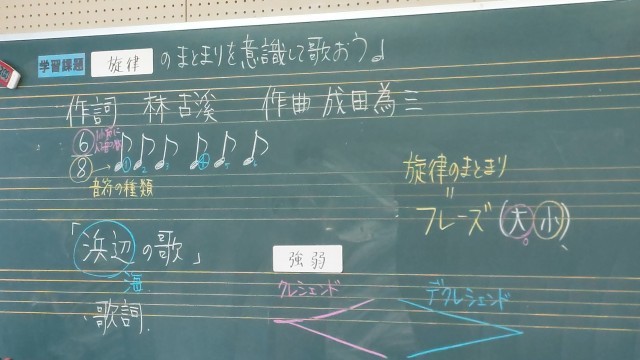 学習課題 旋律 のまとまりを意識して歌おう♩
作詞 林古溪 作曲 成田為三
6
1 2 3 4 5 6
8 → 音符の種類
旋律のまとまり
=
フレーズ(大小)
「浜辺の歌」
海
歌詞
強弱
クレシェンド デクレシェンド